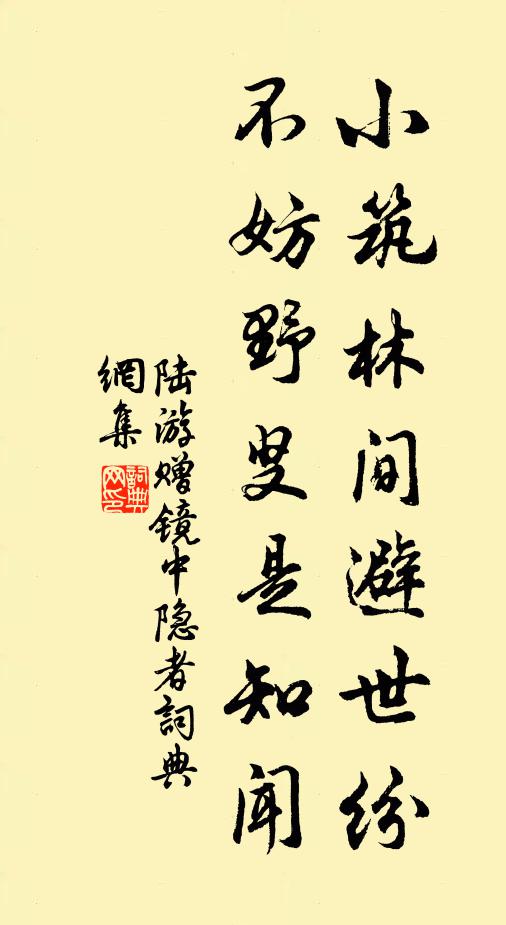 小筑林间避世纷
不妨野叟是知闻
陆游赠镜中隐者詞典
網集
詞典网印